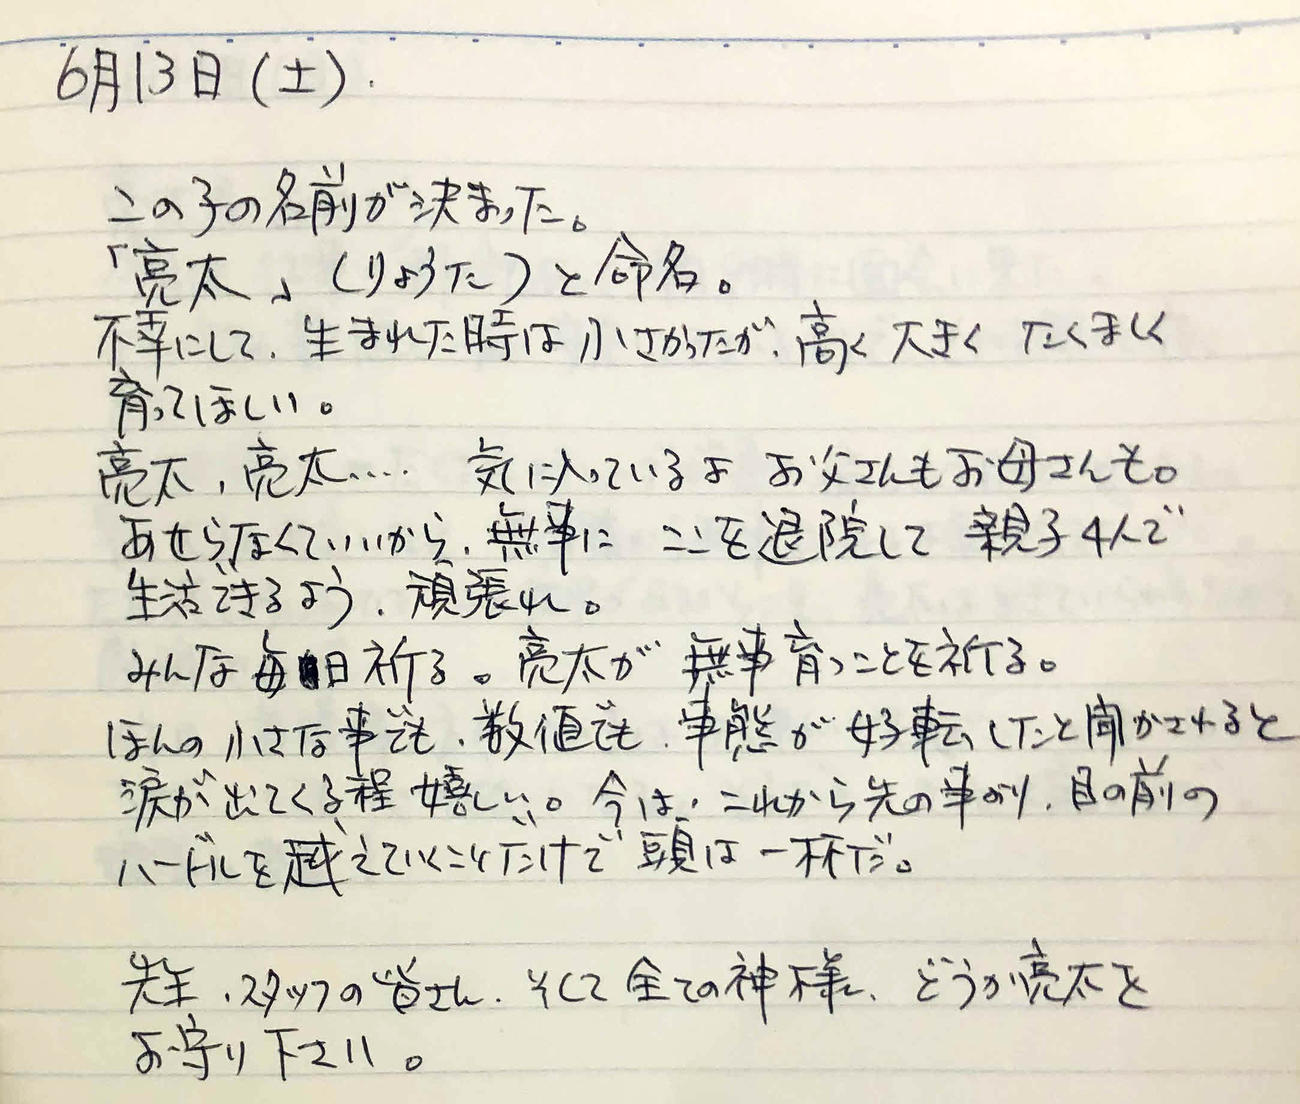 6月13日(土).
この子の名前が決まった。
「亮太」(りょうた)と命名。
不幸にして、生まれた時は小さかったが、高く大きくたくましく
育ってほしい。
亮太、亮太.... 気に入っているよ お父さんもお母さんも。
あせらなくていいから、無事に ここを退院して 親子4人で
生活できるよう、頑張れ。
みんな毎日祈る。亮太が無事育つことを祈る。
ほんの小さな事でも、数値でも、事態が好転したと聞かされると
涙が出てくる程嬉しい。今は、これから先の事より、目の前の
ハードルを越えていくことだけで頭は一杯だ。
先生、スタッフの皆さん、そして全ての神様、どうか亮太を
お守り下さい。